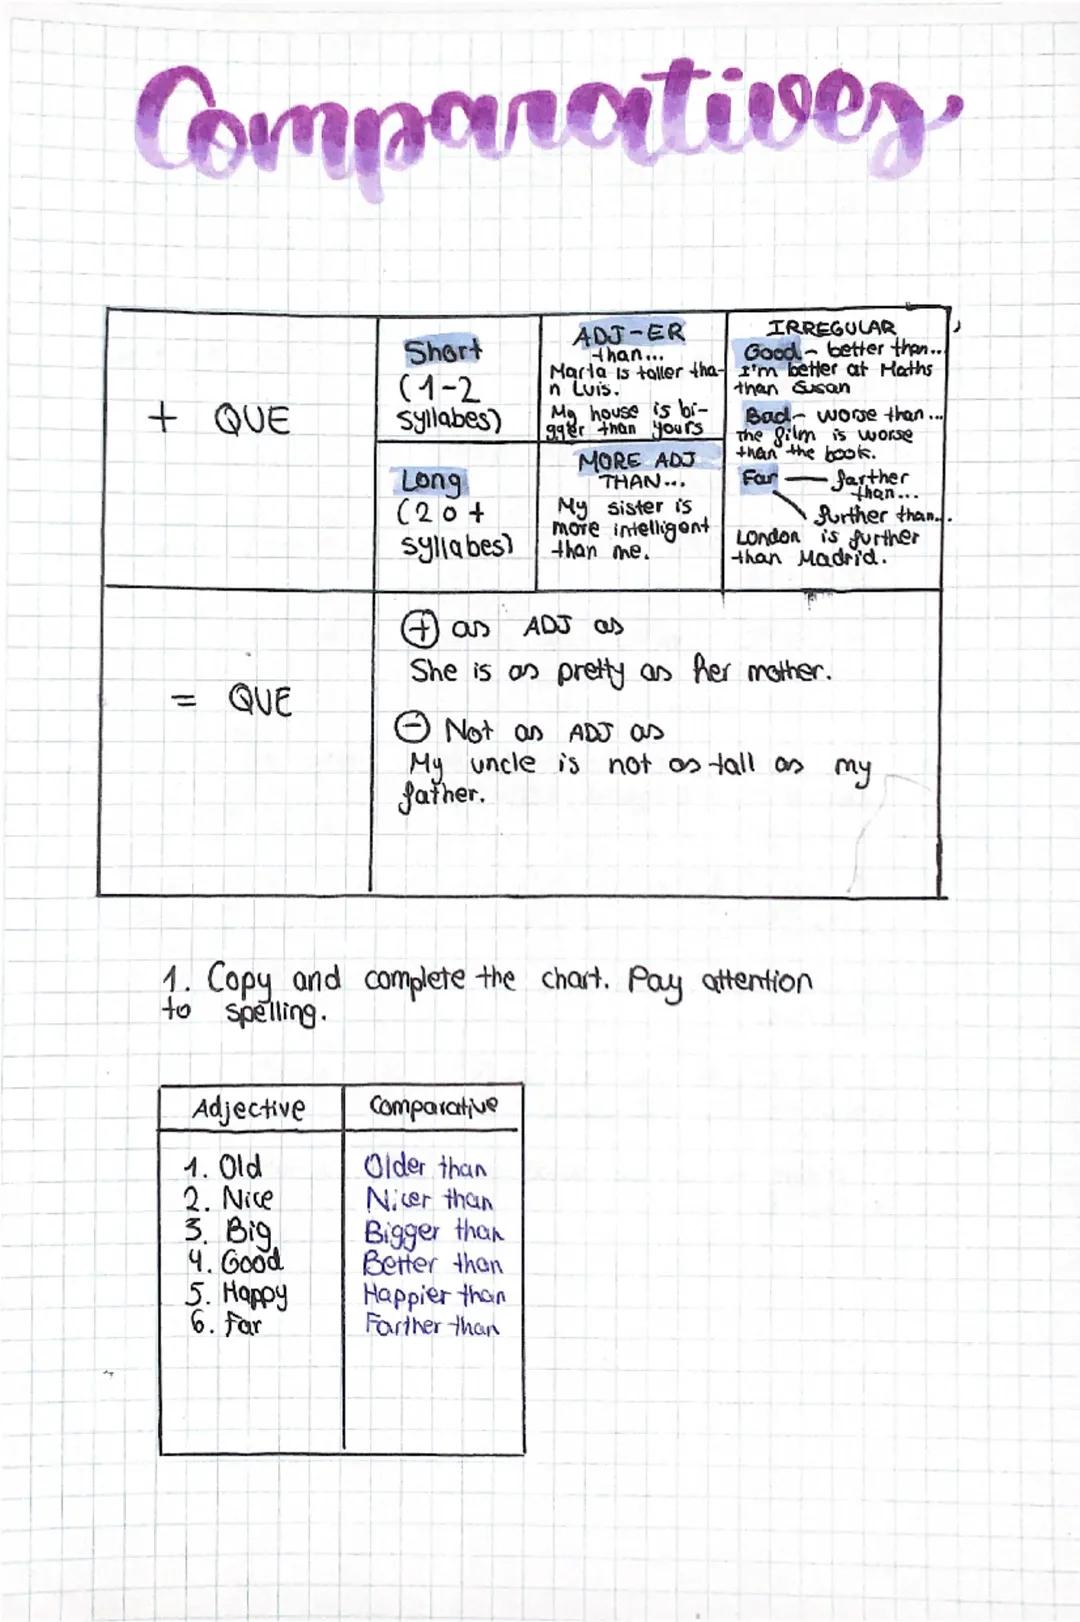 Comparatives
+ QUE
Short
(1-2
syllabes)
ADJ-ER
than...
Marta is taller tha-
n Luis.
My house is bi-
gger than yours
IRREGULAR
Good - better than...
I'm better at Maths
than Susan
Bad - worse than...
The film is worse
than the book.
Far - farther
than...
further than...
London is further
than Madrid.
Long
(2 o +
syllabes)
MORE ADJ
THAN...
My sister is
more intelligent
than me.
= QUE
+ as ADJ as
She is as pretty as her mother.
- Not as ADJ as
My uncle is not as tall as my
father.
1. Copy and complete the chart. Pay attention
to spelling.
Adjective Comparative
1. Old Older than
2. Nice Nicer than
3. Big Bigger than
4. Good Better than
5. Happy Happier than
6. Far Farther than